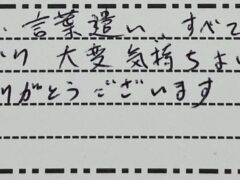 、言葉遣い、すべて
り 大変気持ちよ
りがとうございます